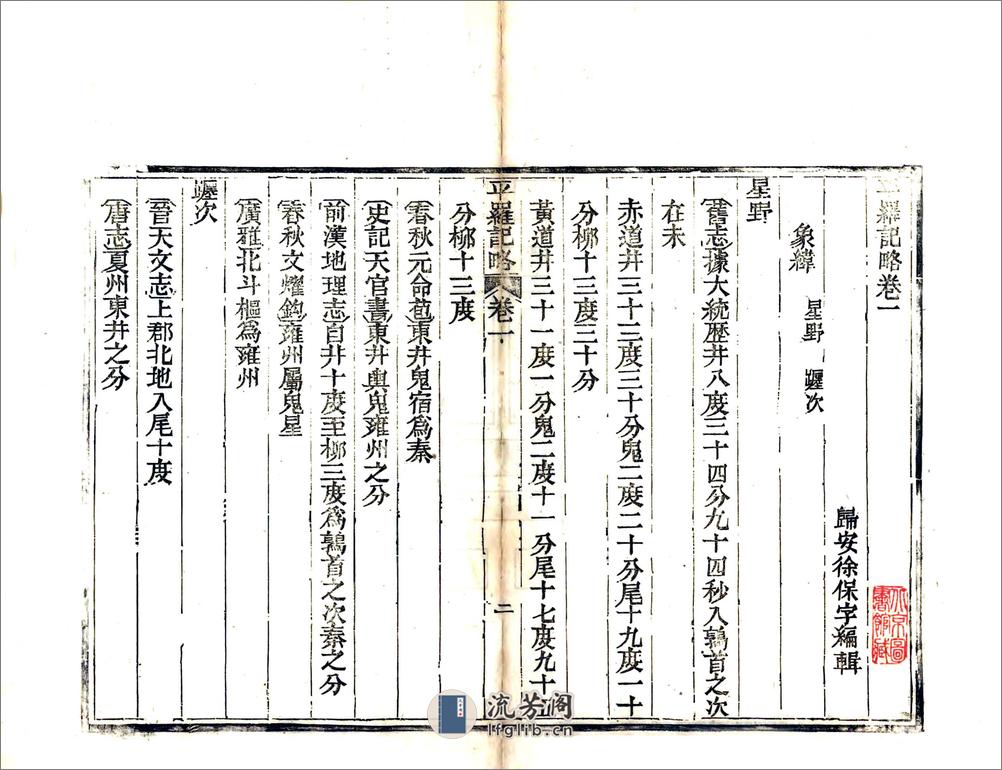 平羅記略卷一
歸安徐保字編輯
象緯 星野 躔次
星野
舊志據大統歷井八度三十四分九十四秒入鶉首之次
在未
赤道井三十三度三十分鬼二度二十分尾十九度一十
分柳十三度三十分
黃道井三十一度一分鬼二度十一分尾十七度九十五
分柳十三度
平羅記略 卷一 二
春秋元命苞東井鬼宿爲秦
史記天官書東井輿鬼雍州之分
前漢地理志自井十度至柳三度爲鶉首之次秦之分
春秋文燿鉤雍州屬鬼星
廣雅北斗樞爲雍州
躔次
晉天文志上郡北地入尾十度
唐志夏州東井之分
北京圖書館藏
流芳阁
lfglib.cn